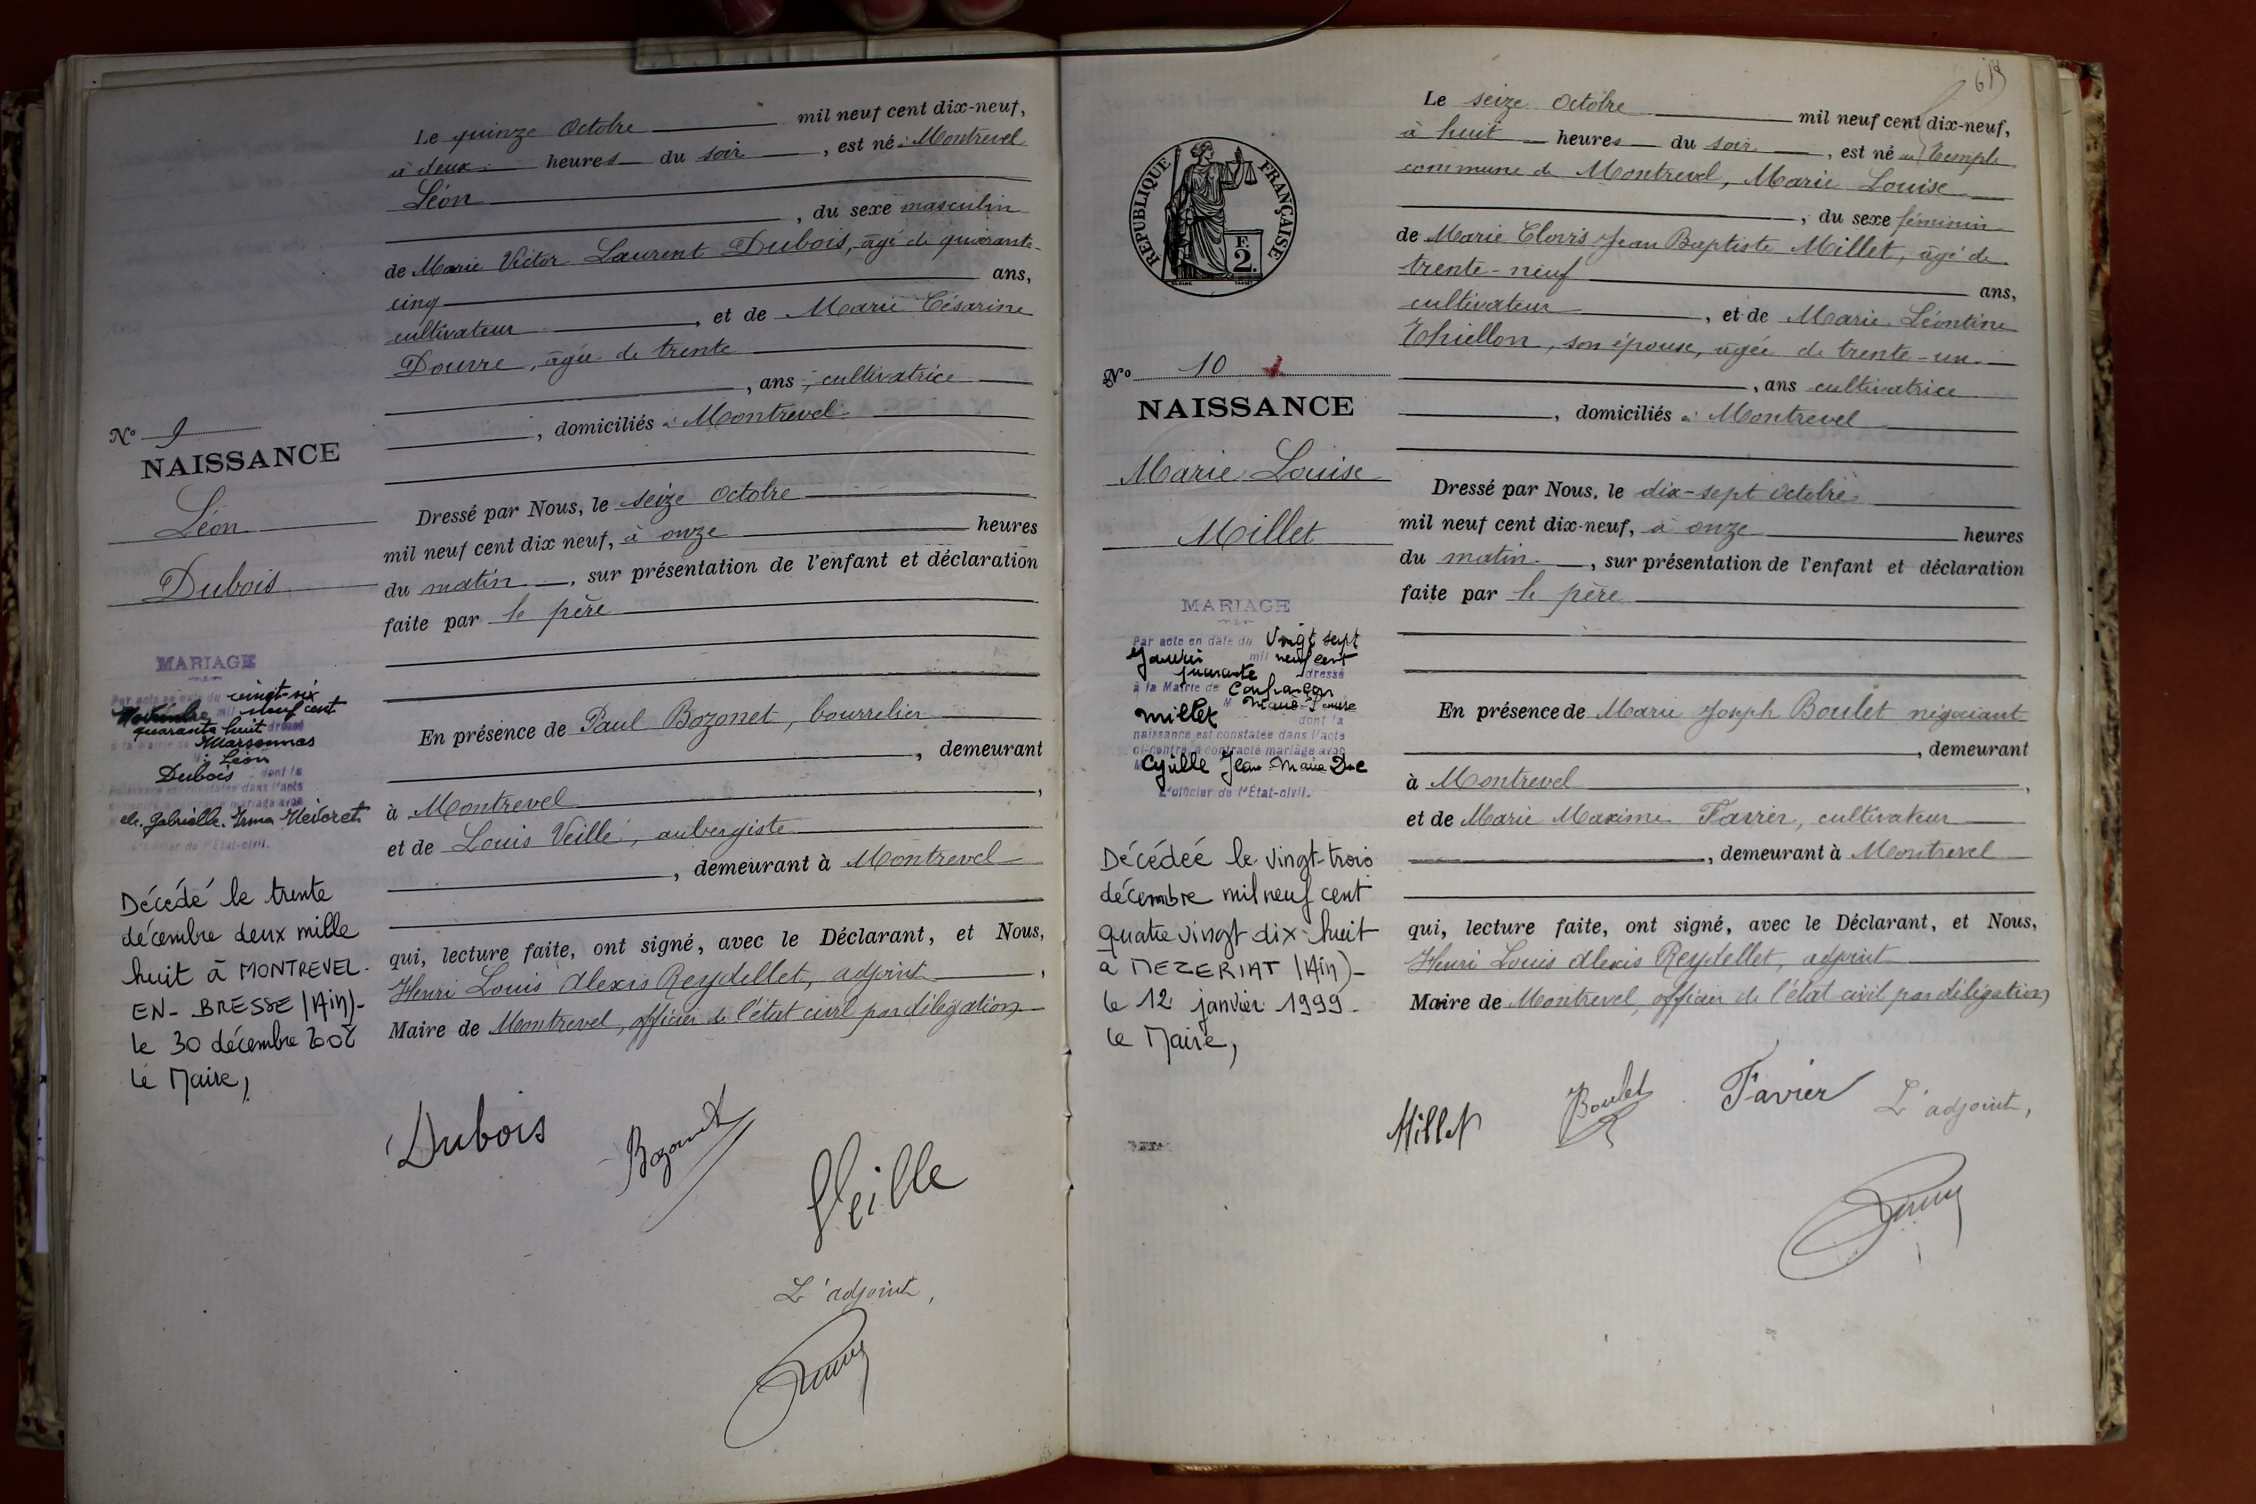 Le quinze Octobre mil neuf cent dix-neuf,
à deux heures du soir, est né à Montrevel
Léon
, du sexe masculin
de Marie Victor Laurent Dubois, âgé de quarante-
cinq ans,
cultivateur, et de Marie Césarine
Douvre, âgée de trente
, ans, cultivatrice
, domiciliés à Montrevel
Dressé par Nous, le seize octobre
mil neuf cent dix neuf, à onze heures
du matin, sur présentation de l'enfant et déclaration
faite par le père
En présence de Paul Bozonet, bourrelier
, demeurant
à Montrevel,
et de Louis Veille, aubergiste
, demeurant à Montrevel
qui, lecture faite, ont signé, avec le Déclarant, et Nous,
Henri Louis Alexis Reydellet, adjoint,
Maire de Montrevel, officier de l'état civil par délégation
Dubois
Bozonet
Veille
L'adjoint,
No 9
NAISSANCE
Léon
Dubois
MARIAGE
Par acte en date du vingt-six
Novembre mil neuf cent
quarante huit dressé
à la Mairie de Marsonnas
Léon
Dubois dont la
naissance est constatée dans l'acte
ci-contre a contracté mariage avec
Gabrielle Irma
L'officier de l'Etat-civil.
Décédé le trente
décembre deux mille
huit à MONTREVEL-
EN-BRESSE (Ain)-
le 30 décembre 2008
le Maire,
Le seize Octobre mil neuf cent dix-neuf,
à huit heures du soir, est né au Temple
commune de Montrevel, Marie Louise
, du sexe féminin
de Marie Clovis Jean Baptiste Millet, âgé de
trente-neuf ans,
cultivateur, et de Marie Léontine
Thiellon, son épouse, âgée de trente-un
, ans cultivatrice
, domiciliés à Montrevel
Dressé par Nous, le dix-sept octobre
mil neuf cent dix-neuf, à onze heures
du matin, sur présentation de l'enfant et déclaration
faite par le père
En présence de Marie Joseph Boulet négociant
, demeurant
à Montrevel,
et de Marie Maxime Favier, cultivateur
, demeurant à Montrevel
qui, lecture faite, ont signé, avec le Déclarant, et Nous,
Henri Louis Alexis Reydellet, adjoint
Maire de Montrevel, officier de l'état civil par délégation
Millet
Boulet
Favier
L'adjoint,
REPUBLIQUE FRANÇAISE
F.
2.
No 10
NAISSANCE
Marie Louise
Millet
MARIAGE
Par acte en date du Vingt sept
Janvier mil neuf cent
quarante dressé
à la Mairie de Confrançon
M Marie-Louise
Millet dont la
naissance est constatée dans l'acte
ci-contre a contracté mariage avec
M Cyrille Jean Marie Duc
L'officier de l'Etat-civil.
Décédée le vingt-trois
décembre mil neuf cent
quatre vingt dix-huit
à MEZERIAT (Ain)-
le 12 janvier 1999-
le Maire,